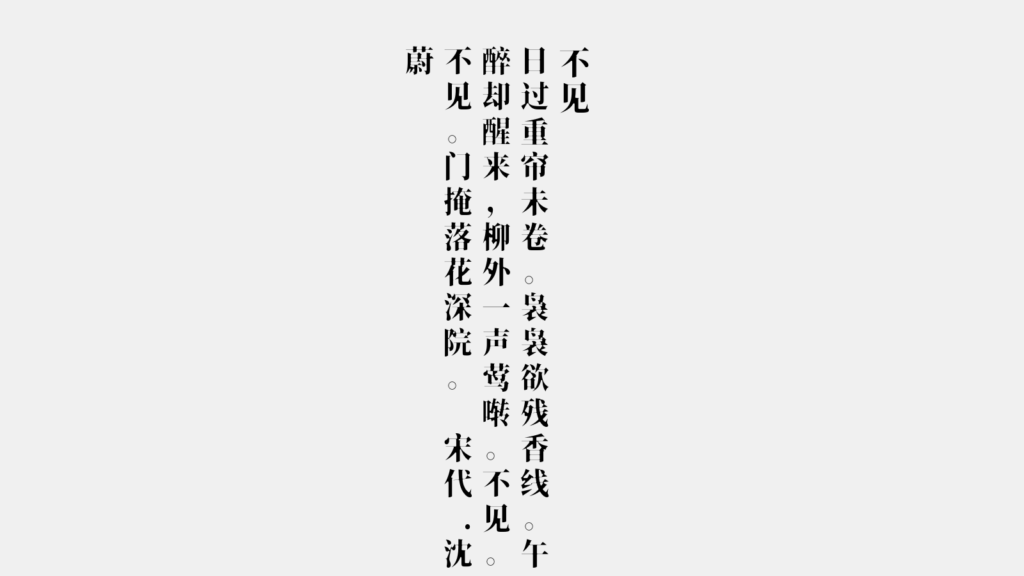 不见
日过重帘未卷。袅袅欲残香线。午
醉却醒来，柳外一声莺啭。不见。
不见。门掩落花深院。 宋代.沈
蔚